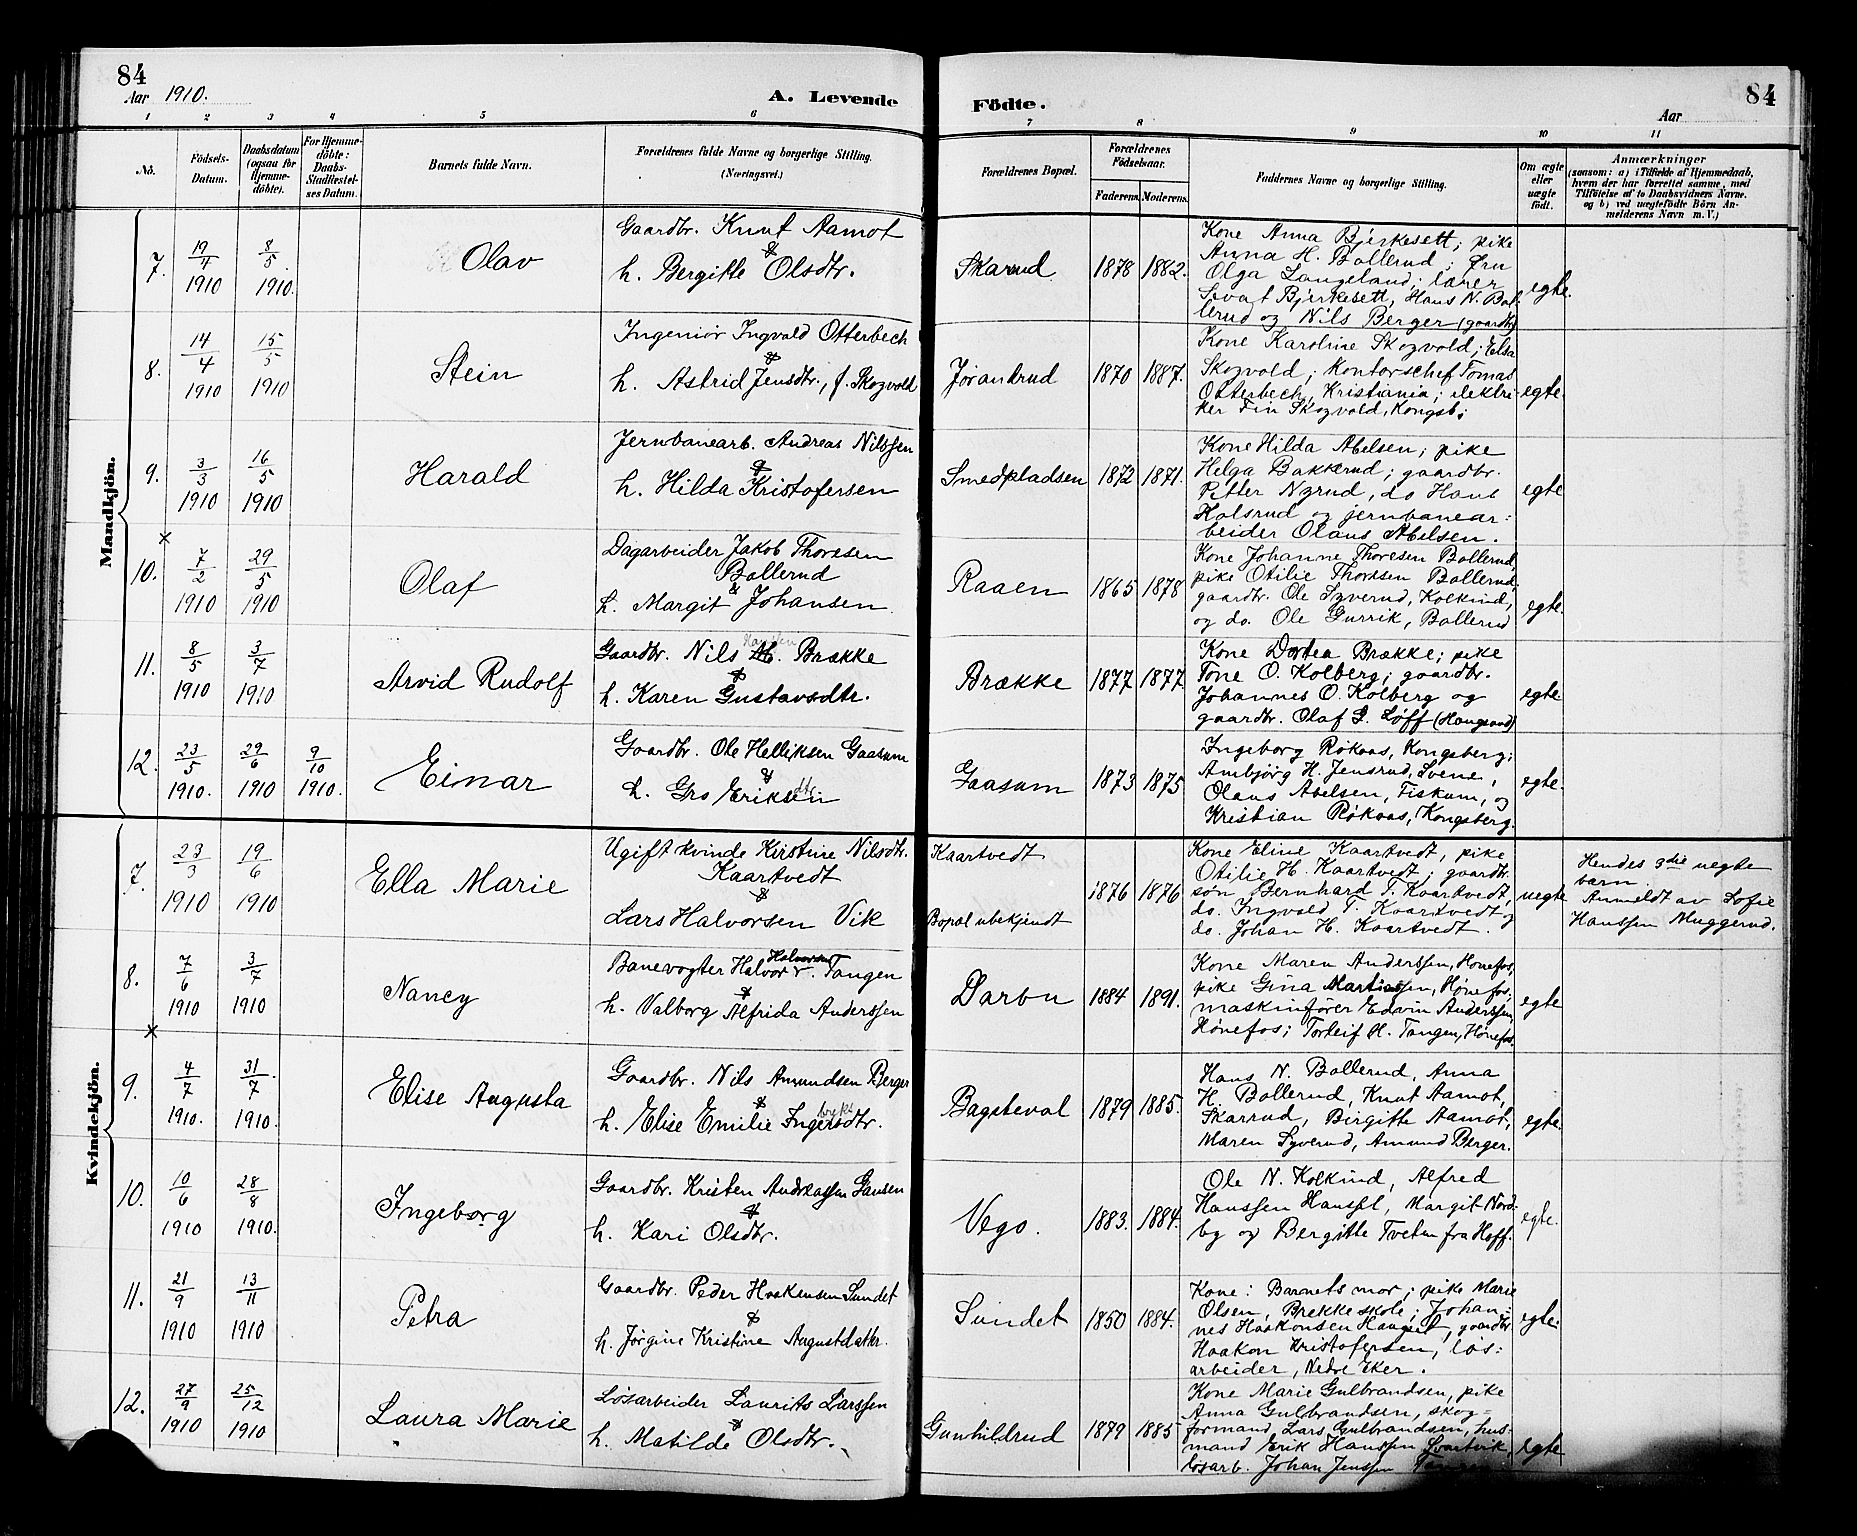 84
Aar 1910.
A. Levende
Födte.
Aar
84
1 2 3 4 5 6 7 8 9 10 11
No.
Födsels-Datum.
Daabsdatum (ogsaa for Hjemme-döbte).
For Hjemme-döbte: Daabs-Stadfæstel-ses Datum.
Barnets fulde Navn.
Forældrenes fulde Navne og borgerlige Stilling.
(Næringsvei.)
Forældrenes Bopæl.
Forældrenes Födselsaar.
Faderens. Moderens.
Faddernes Navne og borgerlige Stilling.
Om ægte eller uægte født.
Anmærkninger
(saasom: a) i Tilfælde af Hjemmedaab,
hvem der har forrettet samme, med
Tilföielse af to Daabsvidners Navne,
og b) ved uægtefödte Börn An-
melderens Navn m. V.)
Mandkjön.
7. 19/4 1910 8/5 1910. Olav
Gaardbr. Knut Aamot
&
h. Bergitte Olsdtr.
Skarud 1878 1882.
Kone Anna Bjerkesett; pike
Anna H. Bollerud; Fru
Olga Langeland; lærer
Sivat Bjerkesett, Hans N. Bol-
lerud og Nils Berger (gaardbr)
egte.
8. 14/4 1910 15/5 1910 Stein
Ingeniør Ingvald Otterbech
&
h. Astrid Jensdtr., f. Skogvold
Jørantrud 1870 1887.
Kone Karoline Skogvold; Elsa
Skogvold; Kontorschef Tomas
Otterbech, Kristiania; elektri-
ker Fin Skogvold, Kongsb;
egte.
9. 3/3 1910 16/5 1910 Harald
Jernbanearb. Andreas Nilssen
&
h. Hilda Kristofersen
Smedpladsen 1872 1871.
Kone Hilda Abelsen; pike
Helga Bakkerud; gaardbr.
Petter Nyrud, do Hans
Holsrud og jernbanear:
beider Olaus Abelsen.
egte
×
10. 7/2 1910 29/5 1910 Olaf
Dagarbeider Jakob Thoresen
Bollerud
&
h. Margit Johansen
Raaen 1865 1878
Kone Johanne Thoresen Bollerud,
pike Otilie Thoresen Bollerud;
gaardbr. Ole Syverud, Kolkind,
og do. Ole Gurrik, Bollerud
egte.
11. 8/5 1910 3/7 1910 Arvid Rudolf
Gaardbr. Nils H. Brække
&
h. Karen Gustavsdtr.
Brække 1877 1877
Kone Dortea Brække; pike
Tone O. Kolberg; gaardbr.
Johannes O. Kolberg og
gaardbr. Olaf G. Løff (Haugsand)
egte.
12. 23/5 1910. 29/6 1910 9/10 1910. Einar
Gaardbr. Ole Helliksen Gaasum
&
h. Gro Eriksen dtr.
Gaasum 1873 1875
Ingeborg Røkaas, Kongsberg;
Ambjørg H. Jensrud, Svene,
Olaus Abelsen, Fiskum, og
Kristian Røkaas, Kongsberg.
egte.
Kvindekjön.
7. 23/3 1910 19/6 1910 Ella Marie
Ugift kvinde Kirstine Nilsdtr.
Kaartvedt
&
Lars Halvorsen Vik
Kaartvedt
Bopæl ubekjendt
1876 1876
Kone Eline Kaartvedt, pike
Otilie H. Kaartvedt; gaardbr.
søn Bernhard T. Kaartvedt,
do. Ingvald T. Kaartvedt og
do. Johan H. Kaartvedt.
uegte
Hendes 3die uegte
barn
Anmeldt av Sofie
Hanssen Muggerud.
8. 7/6 1910 3/7 1910 Nancy
Banevogter Halvor Halvorsen Tangen
&
h. Valborg Alfrida Anderssen
Darbu 1884 1891.
Kone Maren Anderssen, Hønefos,
pike Gina Martinssen, Hønefos,
maskinfører Edvin Anderssen,
Hønefos; Torleif H. Tangen, Hønefos.
egte
×
9. 4/7 1910. 31/7 1910. Elise Augusta
Gaardbr. Nils Amundsen Berger
&
h. Elise Emilie Ingersdtr.
Bagsteval 1879 1885.
Hans N. Bollerud, Anna
H. Bollerud, Knut Aamot,
Skarrud, Birgitte Aamot,
Maren Syverud, Amund Berger.
egte.
10. 10/6 1910 28/8 1910. Ingeborg
Gaardbr. Kristen Andreassen Gansen
&
h. Kari Olsdtr.
Vego. 1883. 1884.
Ole N. Kolkind, Alfred
Hanssen Hanset, Margit Nord-
by og Bergitte Tvetan fra Hoff.
egte.
11. 21/9 1910 13/11 1910 Petra
Gaardbr. Peder Haakensen Sundet
&
h. Jørgine Kristine Augustdatter.
Sundet 1850 1884.
Kone: Barnets mor; pike Marie
Olsen, Brekke skole; Johan-
nes Haakonsen Hauget, gaardbr
Haakon Kristofersen, løs:
arbeider, Nedre Eker.
egte.
12. 27/9 1910 25/12 1910 Laura Marie
Løsarbeider Laurits Larssen
&
h. Matilde Olsdtr.
Gunhildrud 1879 1885
Kone Marie Gulbrandsen, pike
Anna Gulbrandsen, skog=
formand Lars Gulbrandsen, hus-
mand Erik Hanssen Svartvik,
løsarb. Johan Jenssen Tangen
egte